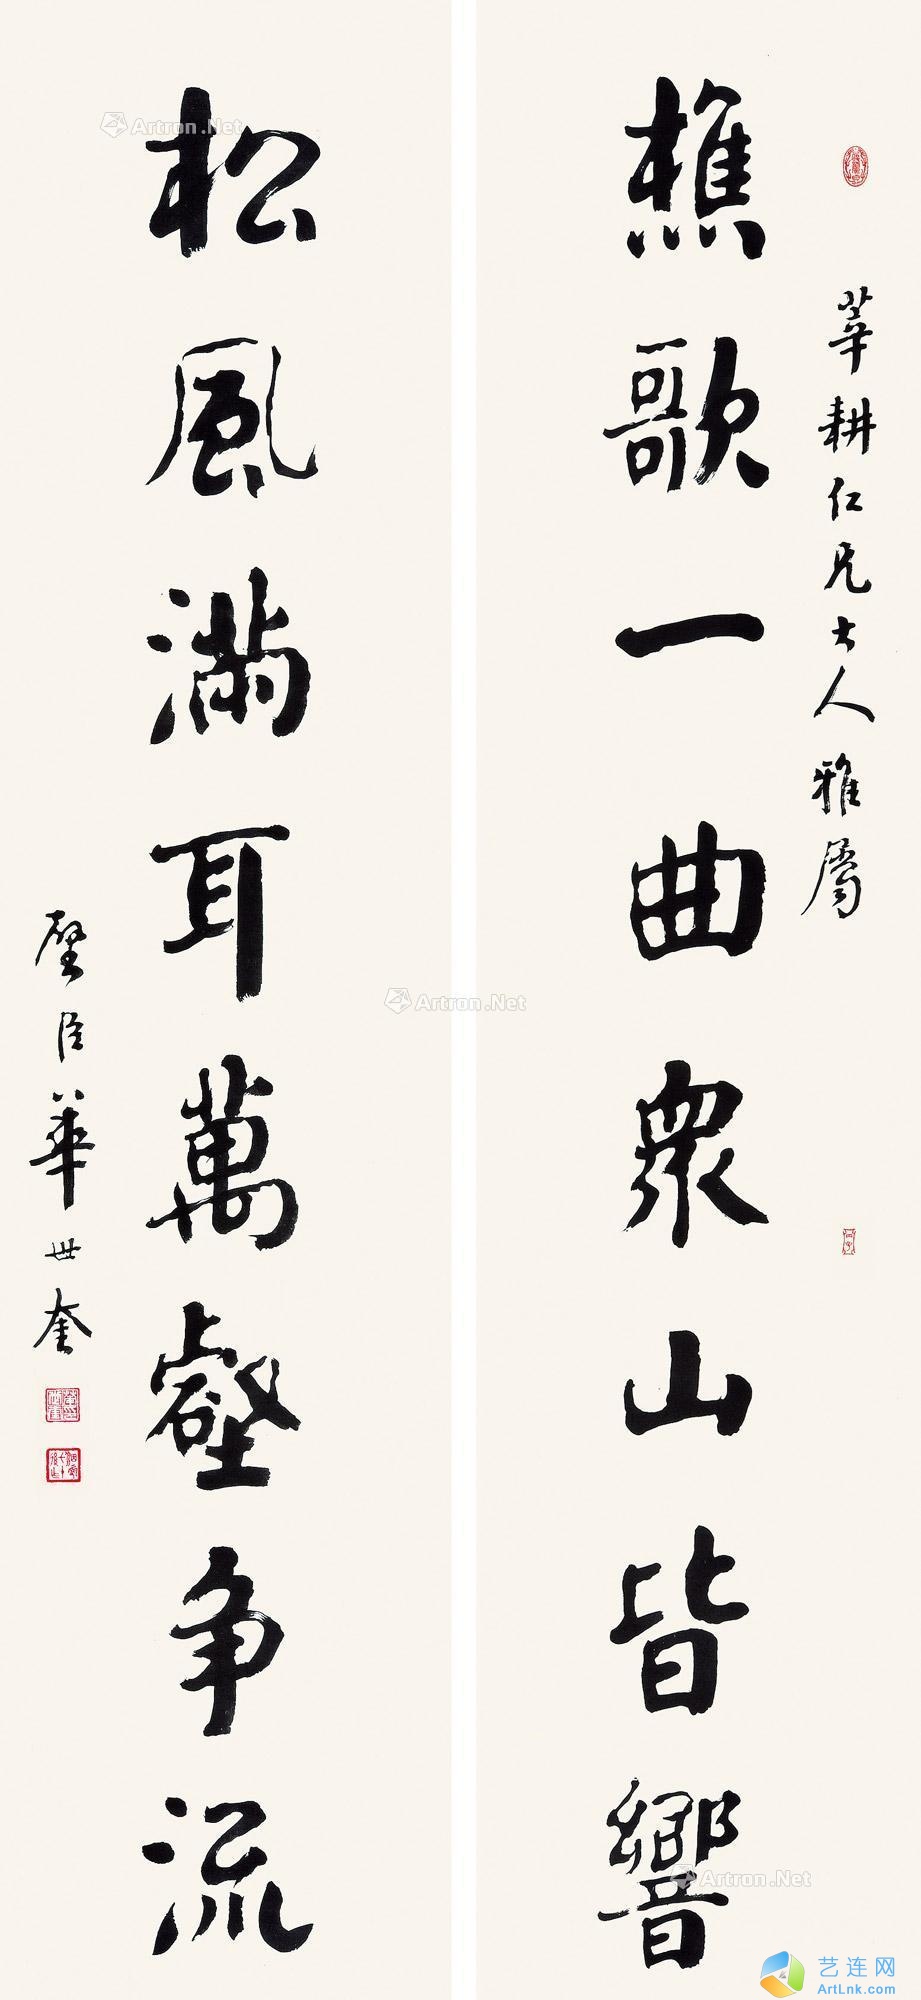 莘耕仁兄大人雅屬
樵歌一曲衆山皆響
松風滿耳萬壑争流
璧臣華世奎
Artron.Net
Artron.Net
Artron.Net
艺连网
ArtLnk.com